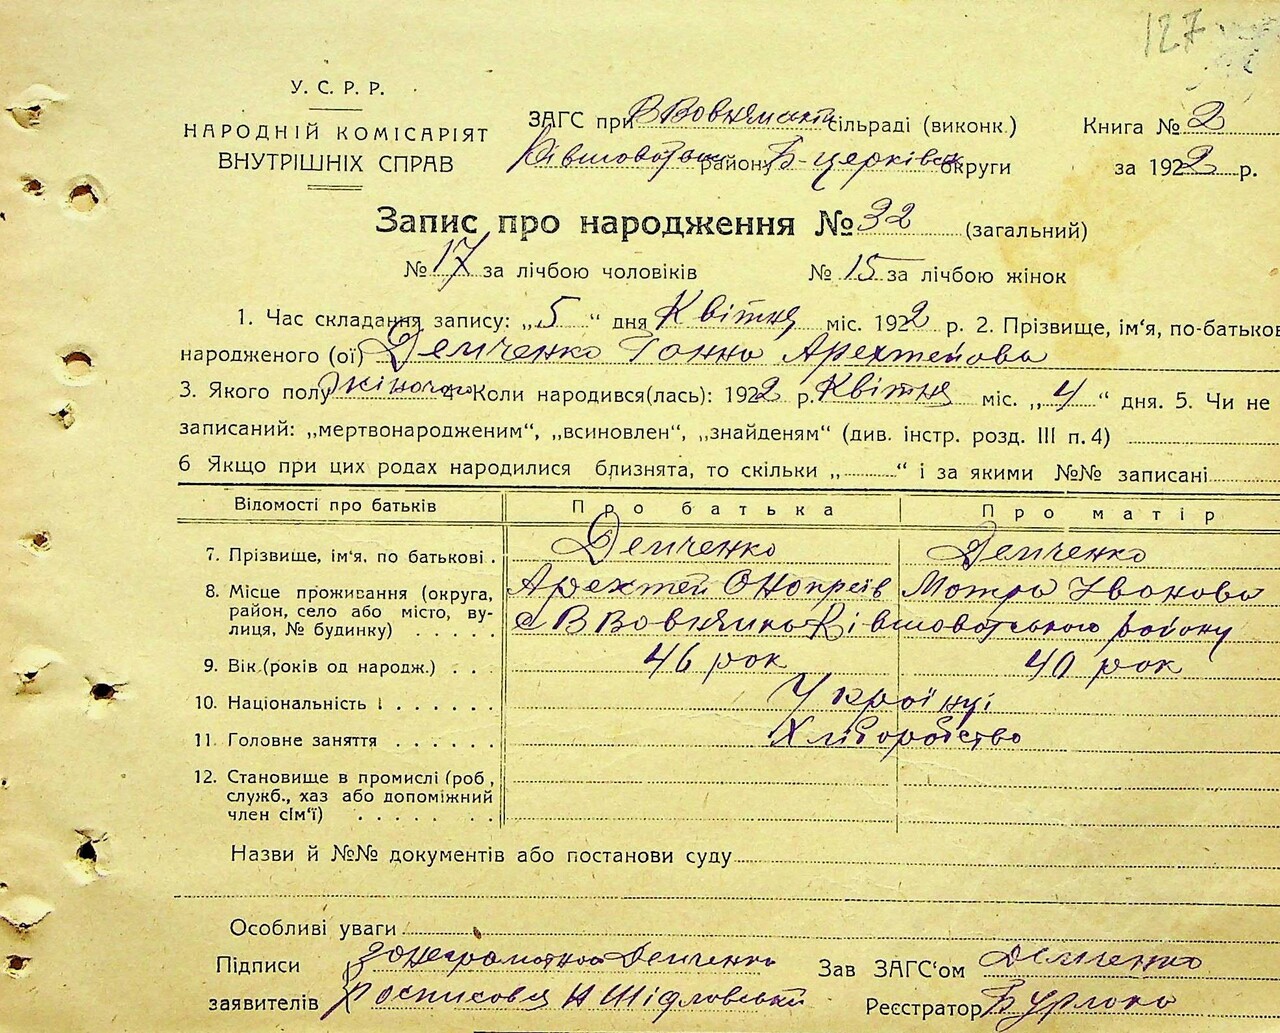 127
У. С. Р. Р.
НАРОДНІЙ КОМІСАРІЯТ
ВНУТРІШНІХ СПРАВ
ЗАГС при В Вовнянській сільраді (виконк.)
району Б-церківськ округи
Книга № 2
за 1922 р.
Запис про народження № 32 (загальний)
№ 17 за лічбою чоловіків № 15 за лічбою жінок
1. Час складання запису: „5“ дня Квітня міс. 1922 р. 2. Прізвище, ім'я, по-батьков
народженого (ої) Демченко Ганна Архтемова
3. Якого полу жіночого 4. Коли народився(лась): 1922 р. Квітня міс. „4“ дня. 5. Чи не
записаний: „мертвонародженим“, „всиновлен“, „знайденям“ (див. інстр. розд. III п. 4)
6 Якщо при цих родах народилися близнята, то скільки „ “ і за якими №№ записані
Відомості про батьків Про батька Про матір
7. Прізвище, ім'я, по батькові . Демченко Демченко
8. Місце проживання (округа, район, село або місто, вулиця, № будинку) Онопріїв Мотря Іванова
с В Вовнянка району
9. Вік (років од народж.) . . 46 рок 40 рок
10. Національність Українці
11. Головне заняття Хліборобство
12. Становище в промислі (роб, служб., хаз або допоміжний член сім'ї)
Назви й №№ документів або постанови суду
Особливі уваги
Підписи за неграмотной Демченко Зав ЗАГС'ом Демченко
заявителів росписовся Н Шідловський Реєстратор Бурлака